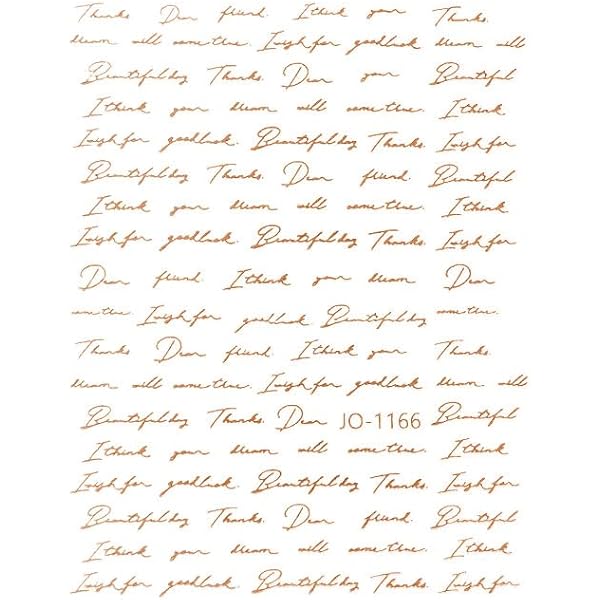 Thanks. Dear friend. I think your Thanks.
dream will some true. I wish for goodluck dream will
Beautiful day Thanks. Dear your Beautiful
I think your dream will some true. I think
I wish for goodluck. Beautiful day Thanks. I wish for
Beautiful day Thanks. Dear friend. Beautiful
I think your dream will some true. I think
I wish for goodluck. Beautiful day Thanks. I wish for
Dear friend. I think your dream Dear
some true. I wish for goodluck Beautiful day some true.
Thanks Dear friend. I think your Thanks.
dream will some true. I wish for goodluck dream will
Beautiful day Thanks. Dear JO-1166 Beautiful
I think your dream will some true. I think
I wish for goodluck. Beautiful day Thanks. I wish for
Beautiful day Thanks. Dear friend. Beautiful
I think your dream will some true. I think
I wish for goodluck. Beautiful day Thanks. I wish for